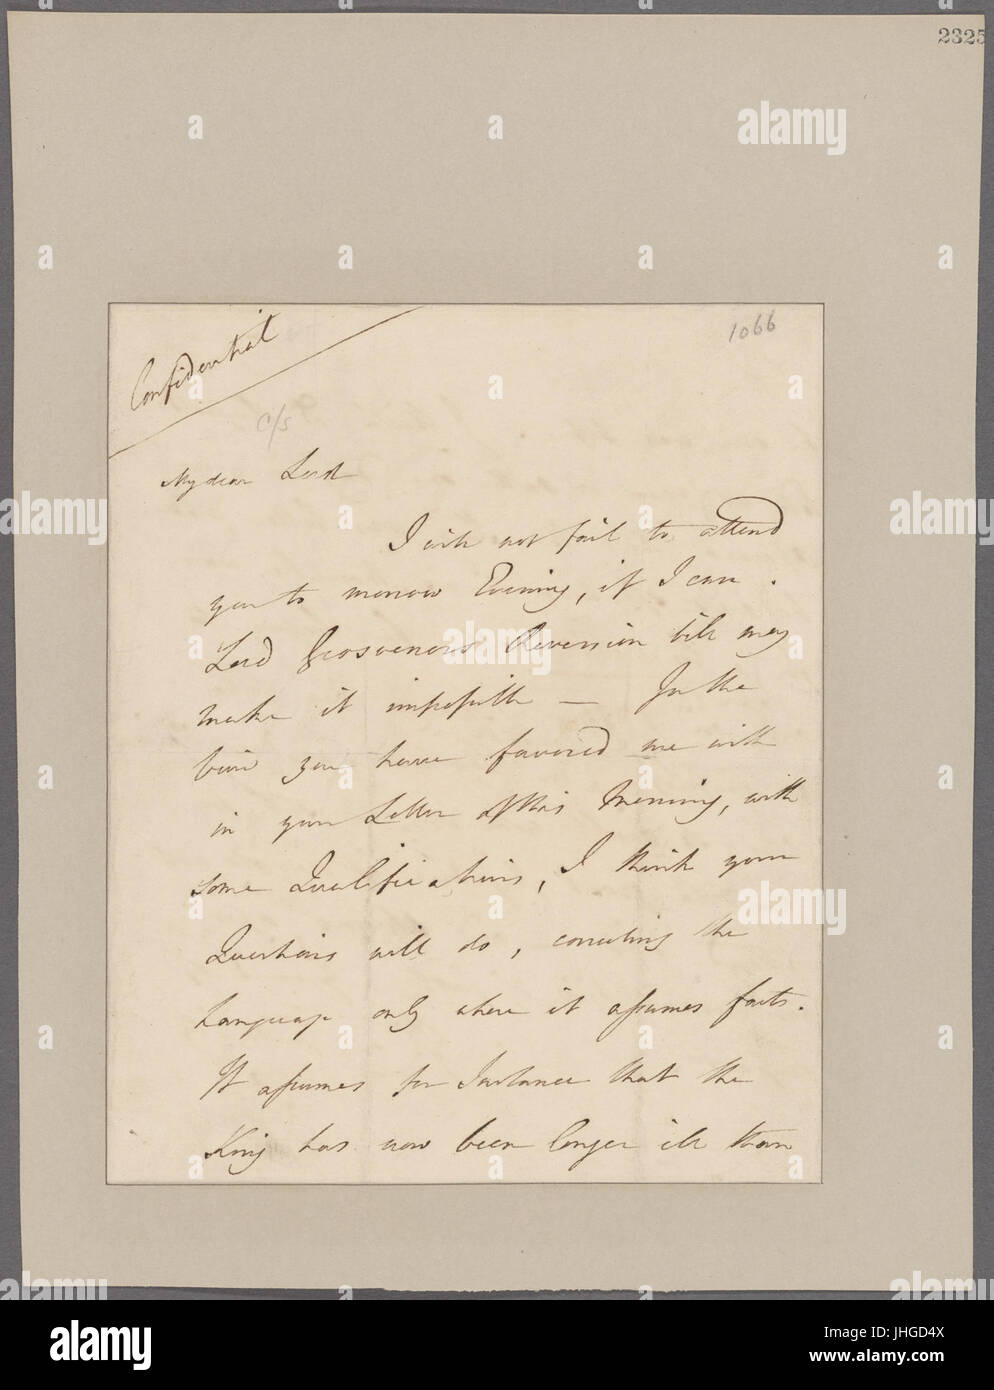 2325
1066
Confidential
c/s
My dear Lord
I will not fail to attend
you to morrow Evening, if I can.
Lord Grosvenors Reversion bill may
make it impossible — In the
view you have favored me with
in your Letter of this Morning, with
some Qualifications, I think your
Questions will do, correcting the
Language only where it assumes facts.
It assumes for Instance that the
King has now been longer ill than
alamy
Image ID: JHGD4X
www.alamy.com